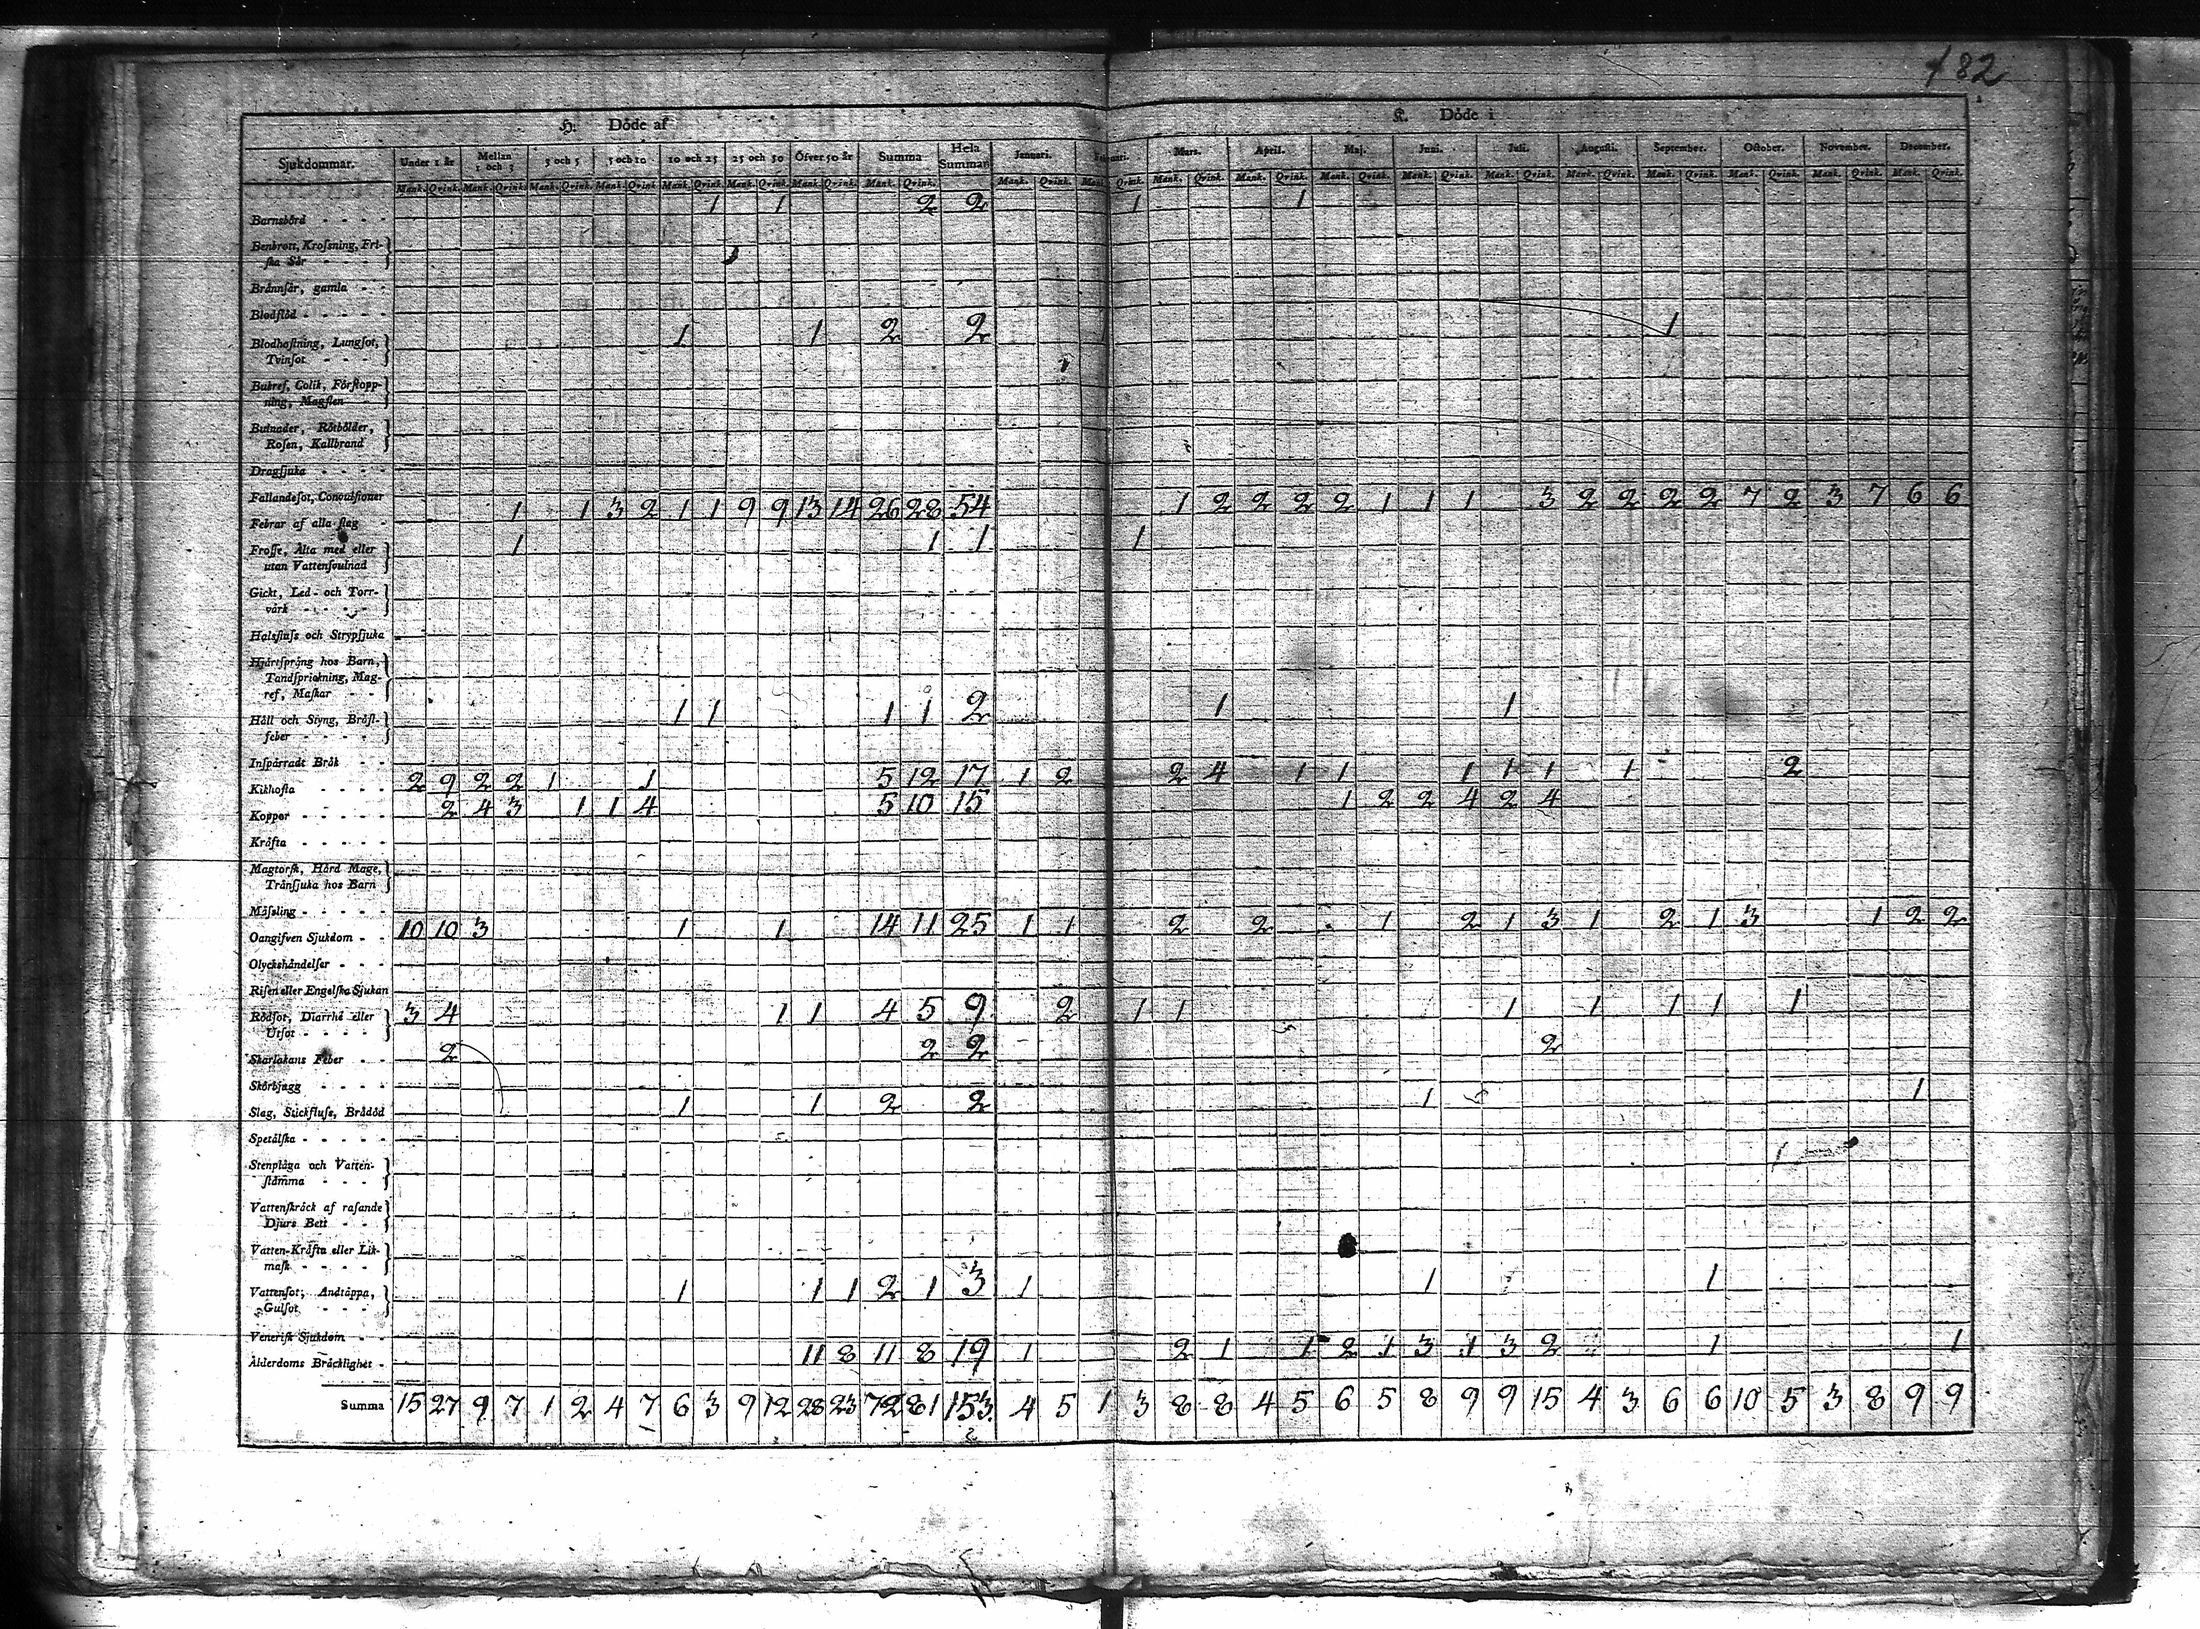 182
H. Döde af K. Döde i
Sjukdommar. Under 1 år Mellan 1 och 3 3 och 5 5 och 10 10 och 25 25 och 50 Öfver 50 år Summa Hela Summan Januari. Februari. Mars. April. Maj. Juni. Juli. Augusti. September. October. November. December.
Mank. Qvink. Mank. Qvink. Mank. Qvink. Mank. Qvink. Mank. Qvink. Mank. Qvink. Mank. Qvink. Mank. Qvink. Mank. Qvink. Mank. Qvink. Mank. Qvink. Mank. Qvink. Mank. Qvink. Mank. Qvink. Mank. Qvink. Mank. Qvink. Mank. Qvink. Mank. Qvink. Mank. Qvink. Mank. Qvink.
Barnsbörd - - - - 1 1 2 2 1 1
Benbrott, Krosning, Fri-
ska Sår - - - -
Brännsår, gamla - -
Blodflöd - - - - -
Blodhostning, Lungsot, 1 1 2 2 1
Tvinsot - - -
Bukref, Colik, Förstopp-
ning, Magsten -
Bulnader, Rötbölder,
Rosen, Kallbrand
Dragsjuka - - - -
Fallandesot, Convulsioner
Febrar af alla slag - 1 1 3 2 1 1 9 9 13 14 26 28 54 1 2 2 2 2 1 1 1 3 2 2 2 2 7 2 3 7 6 6
Frosse, Älta med eller 1 1 1 1
utan Vattensvulnad
Gickt, Led- och Torr-
värk - - - -
Halsfluss och Strypsjuka
Hjärtsprång hos Barn,
Tandsprickning, Mag-
ref, Maskar - -
Håll och Styng, Bröst- 1 1 1 1 2 1 1
feber - - - -
Inspärradt Bråk - -
Kikhosta - - - - 2 9 2 2 1 1 5 12 17 1 2 2 4 1 1 1 1 1 1 2
Koppor - - - - - 2 4 3 1 1 4 5 10 15 1 2 2 4 2 4
Kräfta - - - - -
Magtorsk, Hård Mage,
Tränsjuka hos Barn
Mässling - - - - -
Oangifven Sjukdom - - 10 10 3 1 1 14 11 25 1 1 2 2 1 2 1 3 1 2 1 3 1 2 2
Olyckshändelser - - -
Risen eller Engelska Sjukan
Rödsot, Diarrhé eller 3 4 1 1 4 5 9 2 1 1 1 1 1 1 1
Utsot - - - -
Skarlakans Feber - - 2 2 2 2
Skörbjugg - - - -
Slag, Stickfluss, Brådöd 1 1 2 2 1 1
Spetälska - - - - -
Stenplåga och Vatten-
stämma - - -
Vattenskräck af rasande
Djurs Bett - -
Vatten-Kräfta eller Lik-
mask - - - -
Vattensot, Andtäppa, 1 1 1 2 1 3 1 1 1
Gulsot - - -
Venerisk Sjukdom - -
Ålderdoms Bräcklighet - 11 8 11 8 19 1 2 1 1 2 1 3 1 3 2 1 1
Summa 15 27 9 7 1 2 4 7 6 3 9 12 28 23 72 81 153 4 5 1 3 8 8 4 5 6 5 8 9 9 15 4 3 6 6 10 5 3 8 9 9